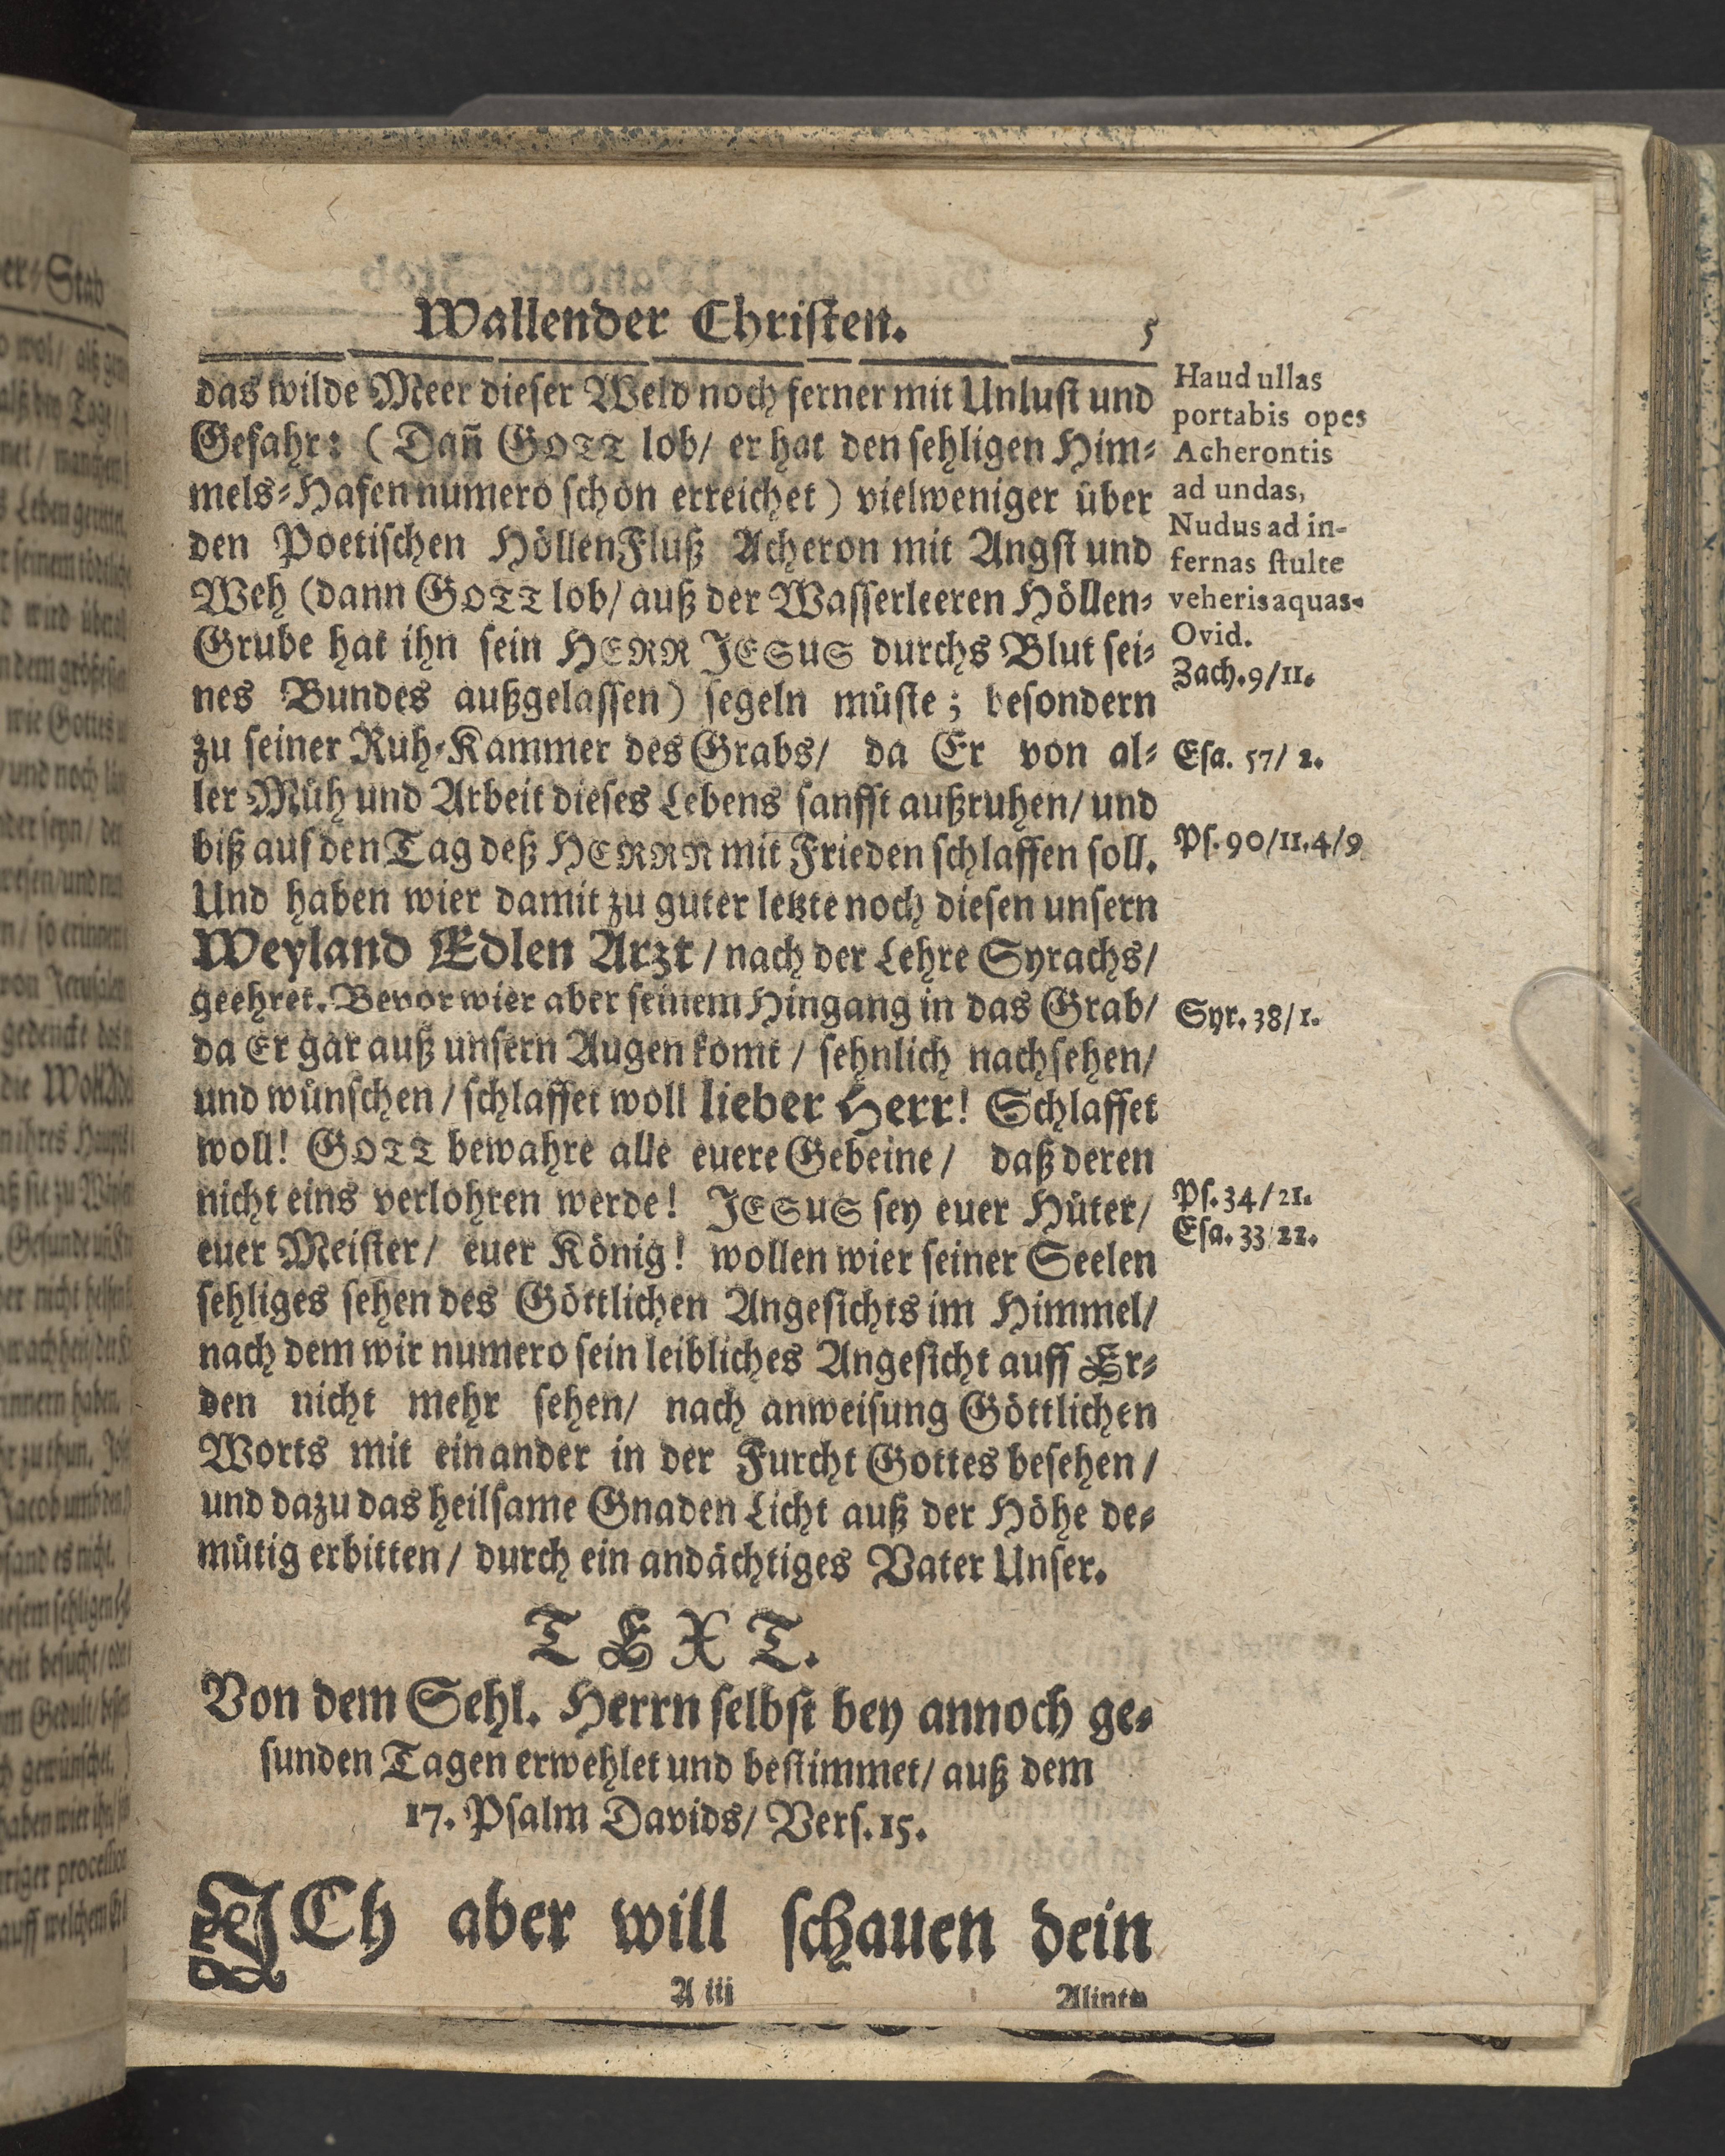 Wallender Christen. 5
das wilde Meer dieser Weld noch ferner mit Unlust und
Gefahr: (Dañ GOTT lob/ er hat den sehligen Him-
mels-Hafen numero schon erreichet) vielweniger über
den Poetischen HöllenFluß Acheron mit Angst und
Weh (dann GOTT lob/ auß der Wasserleeren Höllen-
Grube hat ihn sein HERR JESUS durchs Blut sei-
nes Bundes außgelassen) segeln müste; besondern
zu seiner Ruh-Kammer des Grabs/ da Er von al-
ler Müh und Arbeit dieses Lebens sanfft außruhen/ und
biß auf den Tag deß HERRN mit Frieden schlaffen soll.
Und haben wier damit zu guter letzte noch diesen unsern
Weyland Edlen Arzt / nach der Lehre Syrachs/
geehret. Bevor wier aber seinem Hingang in das Grab/
da Er gar auß unsern Augen komt / sehnlich nachsehen/
und wünschen / schlaffet woll lieber Herr! Schlaffet
woll! GOTT bewahre alle euere Gebeine / daß deren
nicht eins verlohren werde! JESUS sey euer Hüter/
euer Meister/ euer König! wollen wier seiner Seelen
sehliges sehen des Göttlichen Angesichts im Himmel/
nach dem wir numero sein leibliches Angesicht auff Er-
den nicht mehr sehen/ nach anweisung Göttlichen
Worts mit einander in der Furcht Gottes besehen /
und dazu das heilsame Gnaden Licht auß der Höhe de-
mütig erbitten / durch ein andächtiges Vater Unser.
TEXT.
Von dem Sehl. Herrn selbst bey annoch ge-
sunden Tagen erwehlet und bestimmet/ auß dem
17. Psalm Davids/ Vers. 15.
ICh aber will schauen dein
A iii
Haud ullas
portabis opes
Acherontis
ad undas,
Nudus ad in-
fernas stulte
veheris aquas.
Ovid.
Zach. 9/11.
Esa. 57/ 2.
Ps. 90/11.4/9
Syr. 38/1.
Ps. 34/21.
Esa. 33/22.